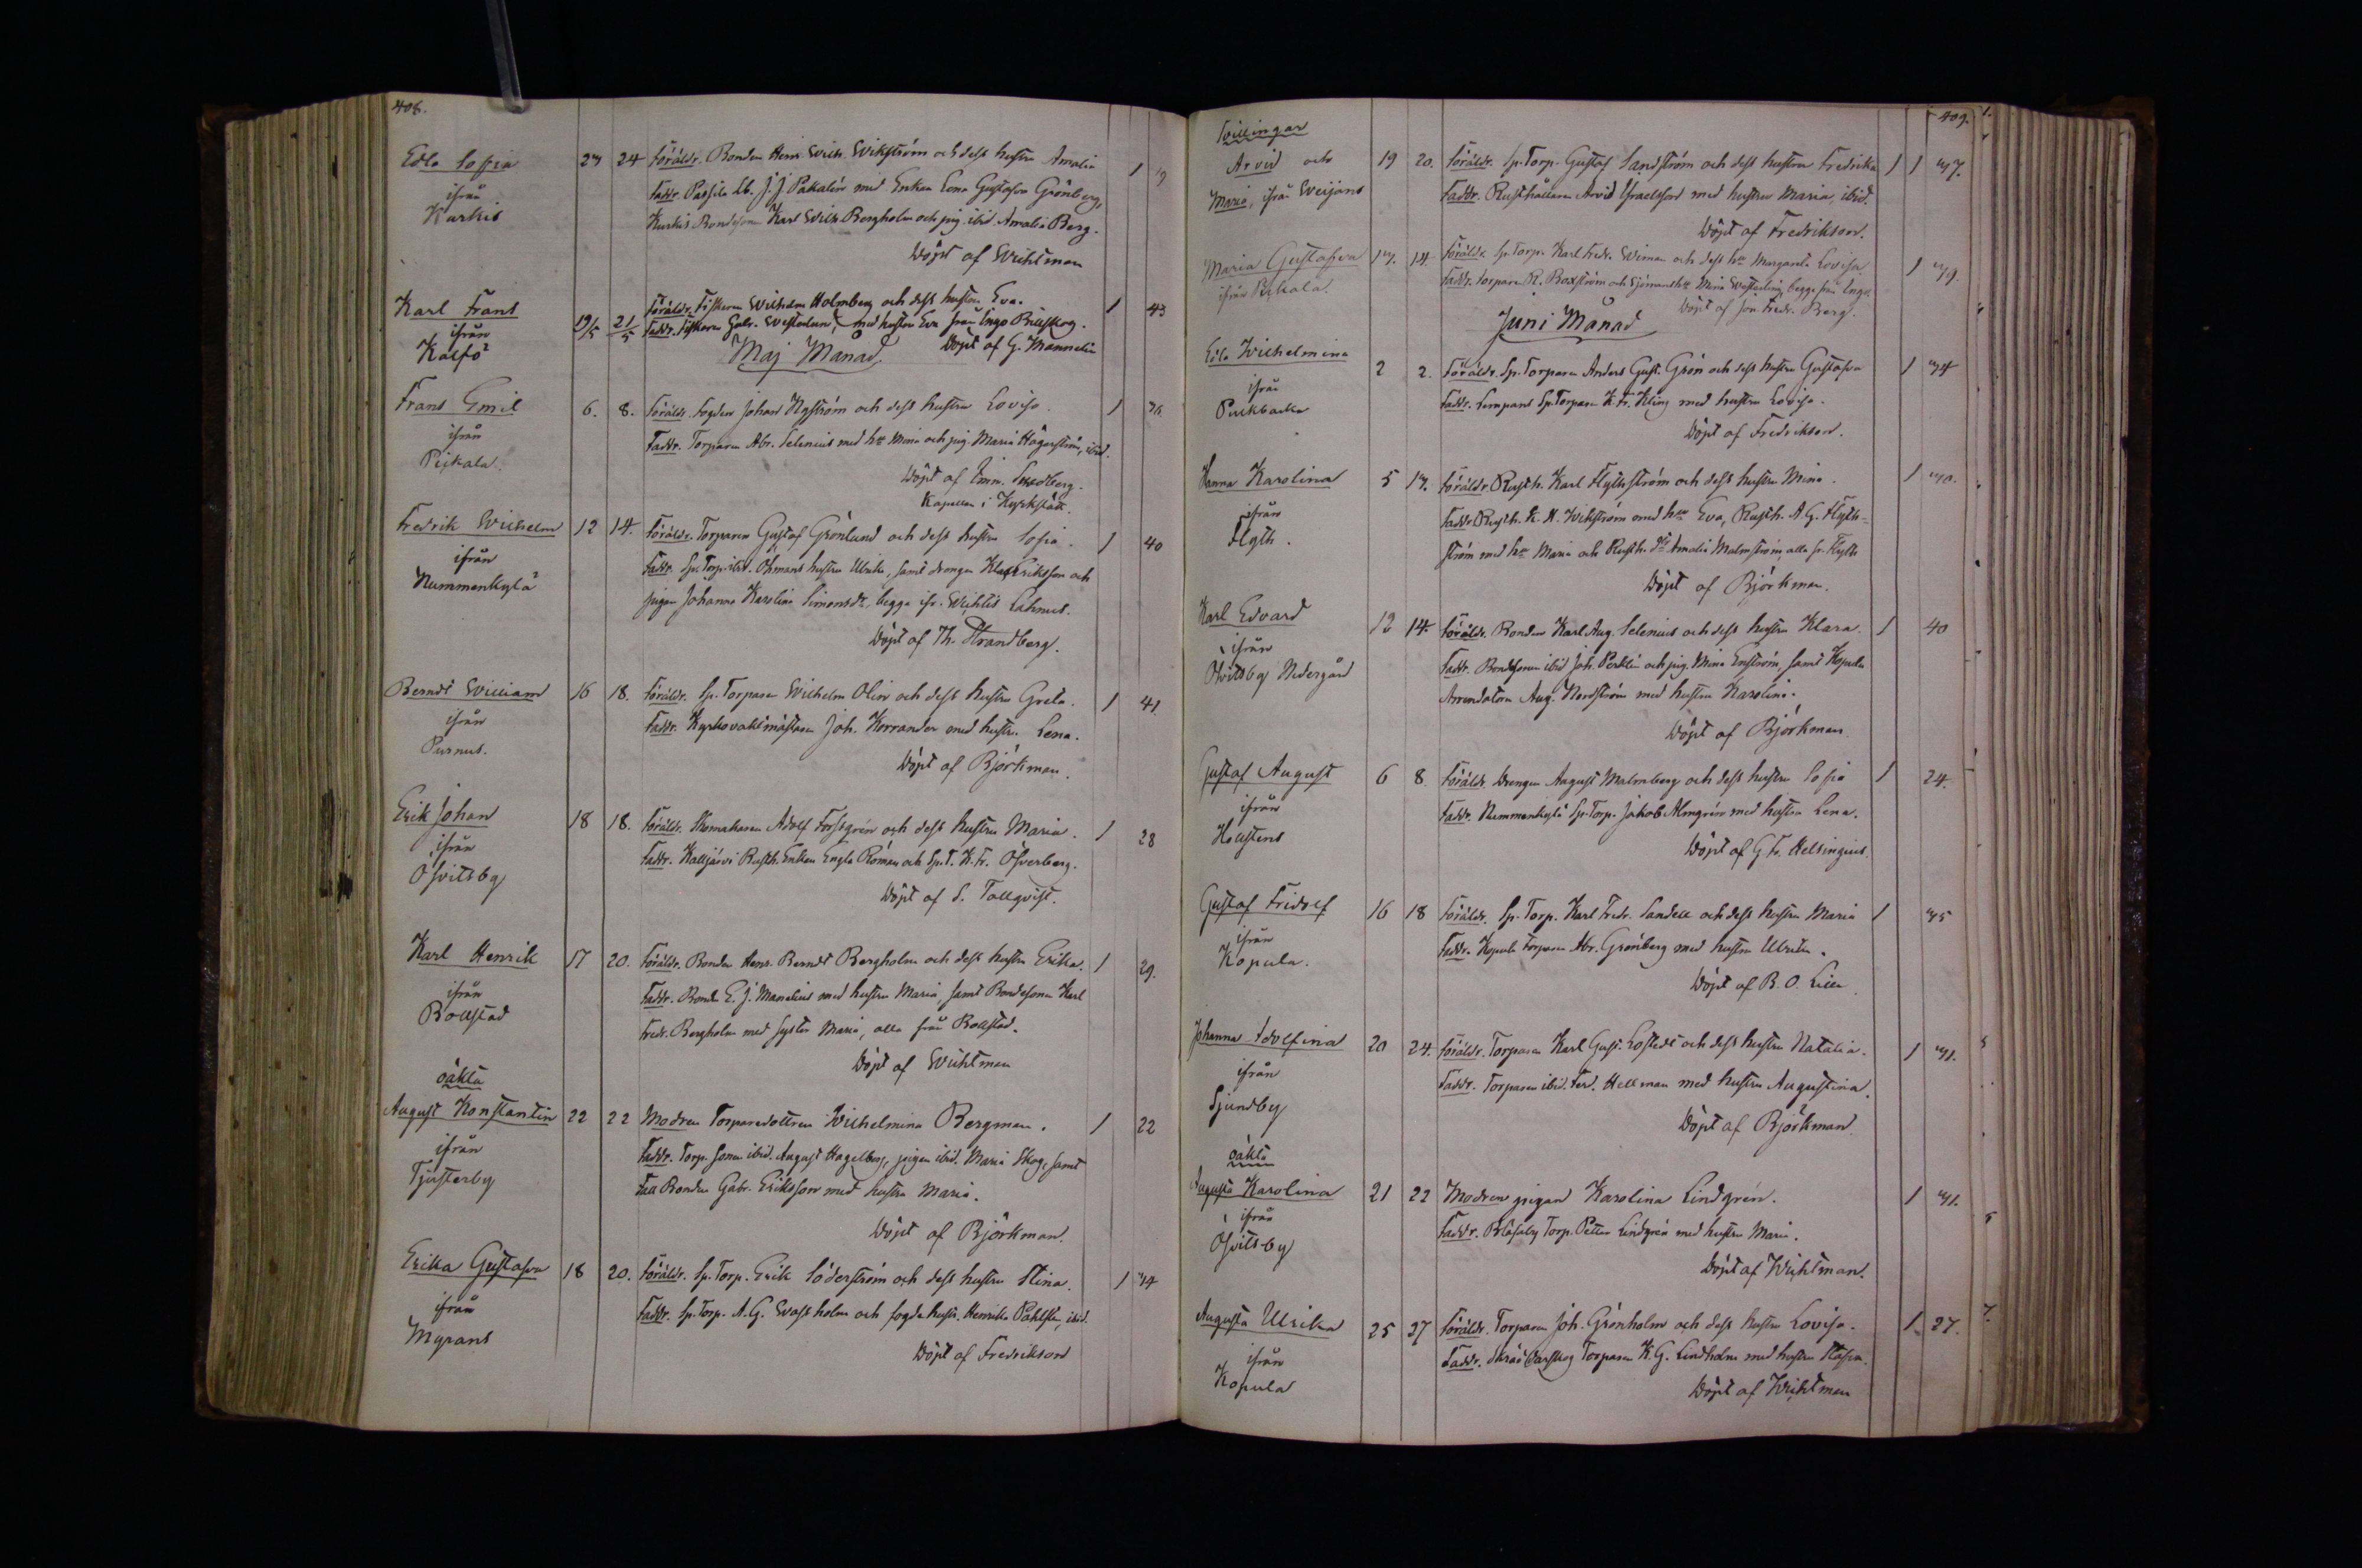 408.
Edla Sofia
ifrån
Kurkis
23 24 Föräldr. Bonden Henr. Wilh. Wikström och dess hustru Amalia 1
Faddr. Passila Lb. J. J. Pakalén med Enkan Lena Gustafva Grönberg,
Kurkis Bondeson Karl Wilh. Bergholm och pig. ibid. Amalia Berg.
Döpt af Wichtman
Karl Frans
ifrån
Kalfö
19/5 21/5 Föräldr. Fiskaren Wilhelm Holmberg och dess hustru Eva. 1 43
Faddr. Fiskaren Gabr. Westerlund, med hustru Eva från Ingo Billskog.
Döpt af G. Mannelin
Maj Månad.
Frans Emil
ifrån
Pickala.
6. 8. Föräldr. Fogden Johan Nyström och dess hustru Lovisa. 1 36.
Faddr. Torparen Abr. Selenius med hu Mina och pig. Maria Högerström, ibid.
Döpt af Emm. Svedberg.
Kapellan i Kyrkslätt.
Fredrik Wilhelm
ifrån
Nummenkylä
12 14. Föräldr. Torparen Gustaf Grönlund och dess hustru Sofia. 1 40
Faddr. Sp. Torp. ibid. Öhmans hustru Ulrika, samt drengen Klas Eriksson och
pigan Johanna Karolina Simonsdr, begge ifr. Wichtis Lahnus.
Döpt af Th. Strandberg.
Berndt William
ifrån
Purnus.
16 18. Föräldr. Sp. Torparen Wilhelm Olin och dess hustru Greta. 1 41.
Faddr. Kyrkovaktmästaren Joh. Korrander med hustr. Lena.
Döpt af Björkman.
Erik Johan
ifrån
Öfvitsby
18 18. Föräldr. Skomakaren Adolf Forssgrén och dess hustru Maria. 1 28
Faddr. Kalljärvi Rusth. Enkan Engla Röman och Sp. T. K. Fr. Öfverberg.
Döpt af S. Tallqvist.
Karl Henrik
ifrån
Bollstad
17 20. Föräldr. Bonden Henr. Berndt Bergholm och dess hustru Erika. 1 29.
Faddr. Bond. E. J. Manelius med hustru Maria, samt Bondesonen Karl
Fredr. Bergholm med syster Maria, alla från Bollstad.
Döpt af Wichtman
oäkta
August Konstantin
ifrån
Tjusterby
22 22 Modren Torparedottren Wilhelmina Bergman. 1 22
Faddr. Torp. sonen ibid. August Hagelberg, pigan ibid. Maria Skog, samt
Fall Bonden Gabr. Eriksson med hustru Maria.
Döpt af Björkman.
Erika Gustafva
ifrån
Myrans
18 20. Föräldr. Sp. Torp. Erik Söderström och dess hustru Stina. 1 34
Faddr. Sp. Torp. A. G. Wassholm och fogde hustr. Henrika Påhlsten, ibid.
Döpt af Fredrikson
409.
Tvillingar
Arvid och
Maria, ifrån Weijans
19 20. Föräldr. Sp. Torp. Gustaf Sandström och dess hustru Fredrika 1 1 37.
Faddr. Rusthållaren Arvid Israelsson med hustru Maria, ibid.
Döpt af Fredrikson.
Maria Gustafva
ifrån Pickala.
13. 14. Föräldr. Sp. Torp. Karl Fredr. Wiman och dess hu Margareta Lovisa 1 39.
Faddr. Torparen R. Boxström och Sjömanshu Mina Westerling, begge från Ingo.
Döpt af Jon Fredr. Berg.
Juni Månad
Edla Wilhelmina
ifrån
Puckbacka
2 2. Föräldr. Sp. Torparen Anders Gust. Grön och dess hustru Gustafva 1 34
Faddr. Lempans Sp. Torparen K. Fr. Kling med hustru Lovisa.
Döpt af Fredrikson.
Hanna Karolina
ifrån
Flyth.
5 13. Föräldr. Rusth. Karl Flythström och dess hustru Mina. 1 30.
Faddr. Rusth. K. H. Wikström med hu Eva, Rusth. A. G. Flyth-
ström med hu Maria och Rusth. dtr Amalia Malmström, alla fr. Flyth
Döpt af Björkman.
Karl Edvard
ifrån
Öfvitsby Nedergård
12 14. Föräldr. Bonden Karl Aug. Selenius och dess hustru Klara. 1 40
Faddr. Bondesonen ibid Joh. Perklén och pig. Mina Enström, samt Kopula
Arrendatorn Aug. Nordström med hustru Karolina.
Döpt af Björkman.
Gustaf August
ifrån
Hollstens
6 8. Föräldr. Drengen August Malmberg och dess hustru Sofia 1 24.
Faddr. Nummenkylä Sp. Torp. Jakob Almgrén med hustru Lena.
Döpt af G. Fr. Helsingius.
Gustaf Fridolf
ifrån
Kopula.
16 18 Föräldr. Sp. Torp. Karl Fredr. Sandell och dess hustru Maria 1 35
Faddr. Kopula Torparen Abr. Grönberg med hustru Ulrika.
Döpt af B. O. Lille
Johanna Adolfina
ifrån
Sjundby
20 24. Föräldr. Torparen Karl Gust. Lostedt och dess hustru Natalia. 1 31.
Faddr. Torparen ibid. Ferd. Hellman med hustru Augustina.
Döpt af Björkman
oäkta
Augusta Karolina
ifrån
Öfvitsby
21 22 Modren pigan Karolina Lindgrén. 1 31.
Faddr. Blåsaby Torp. Petter Lindgrén med hustru Maria.
Döpt af Wichtman.
Augusta Ulrika
ifrån
Kopula
25 27 Föräldr. Torparen Joh. Grönholm och dess hustru Lovisa. 1 27.
Faddr. Torparen K. G. Lindholm med hustru Stafva.
Döpt af Wichtman